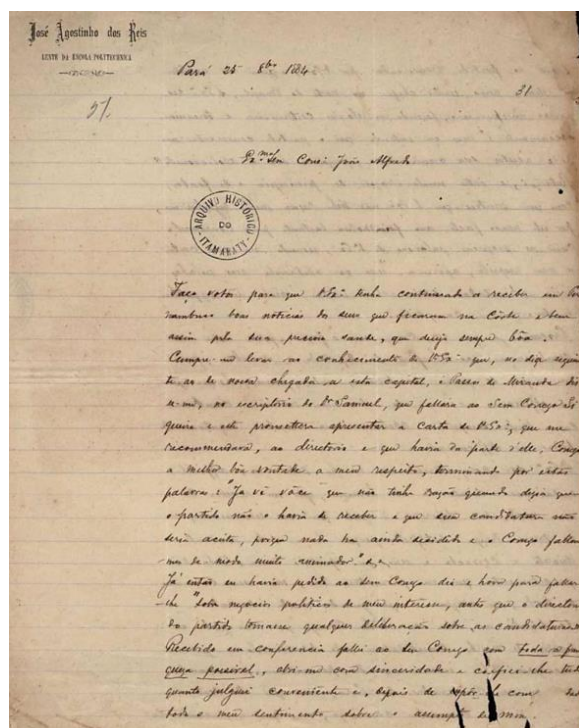 José Agostinho dos Reis
LENTE DA ESCOLA POLYTECHNICA
Pará 25 8bro 1884
31
57
Exmo Sen Consr João Alfredo
ARQUIVO HISTÓRICO
DO
ITAMARATY
Faço votos para que V. Exa tenha continuado a receber em Per
nambuco boas noticias dos seus que ficaram na Côrte e bem
assim pela sua preciosa saude, que desejo sempre bôa.
Cumpre-me levar ao conhecimento de V. Exa que, no dia seguin
te ao de nossa chegada a esta capital, o Passos de Miranda dis
se-me, no escriptorio do Dr Samuel, que fallara ao Sem Conego Si
queira e este promettera apresentar a Carta de V. Exa, que me
recommendava, ao directorio e que havia da parte d'elle, Conego
a melhor bôa vontade a meu respeito, terminando por estas
palavras: "Ja vê vôce que não tinha razão quando dizia que
o partido não o havia de receber e que sua candidatura não
seria aceita, porque nada ha ainda decidido e o Conego fallou
me de modo muito animador" &.
Já então eu havia pedido ao Sem Conego dia e hora para fallar
lhe "sobre negocios politicos de meu interesse, antes que o directorio
do partido tomasse qualquer deliberação sobre as candidaturas.
Recebido em conferencia fallei ao Sem Conego com toda a fran
queza possivel, abri-me com sinceridade e expuz-lhe tudo
quanto julguei conveniente e, depois de
todo o meu sentimento sobre o assumpto